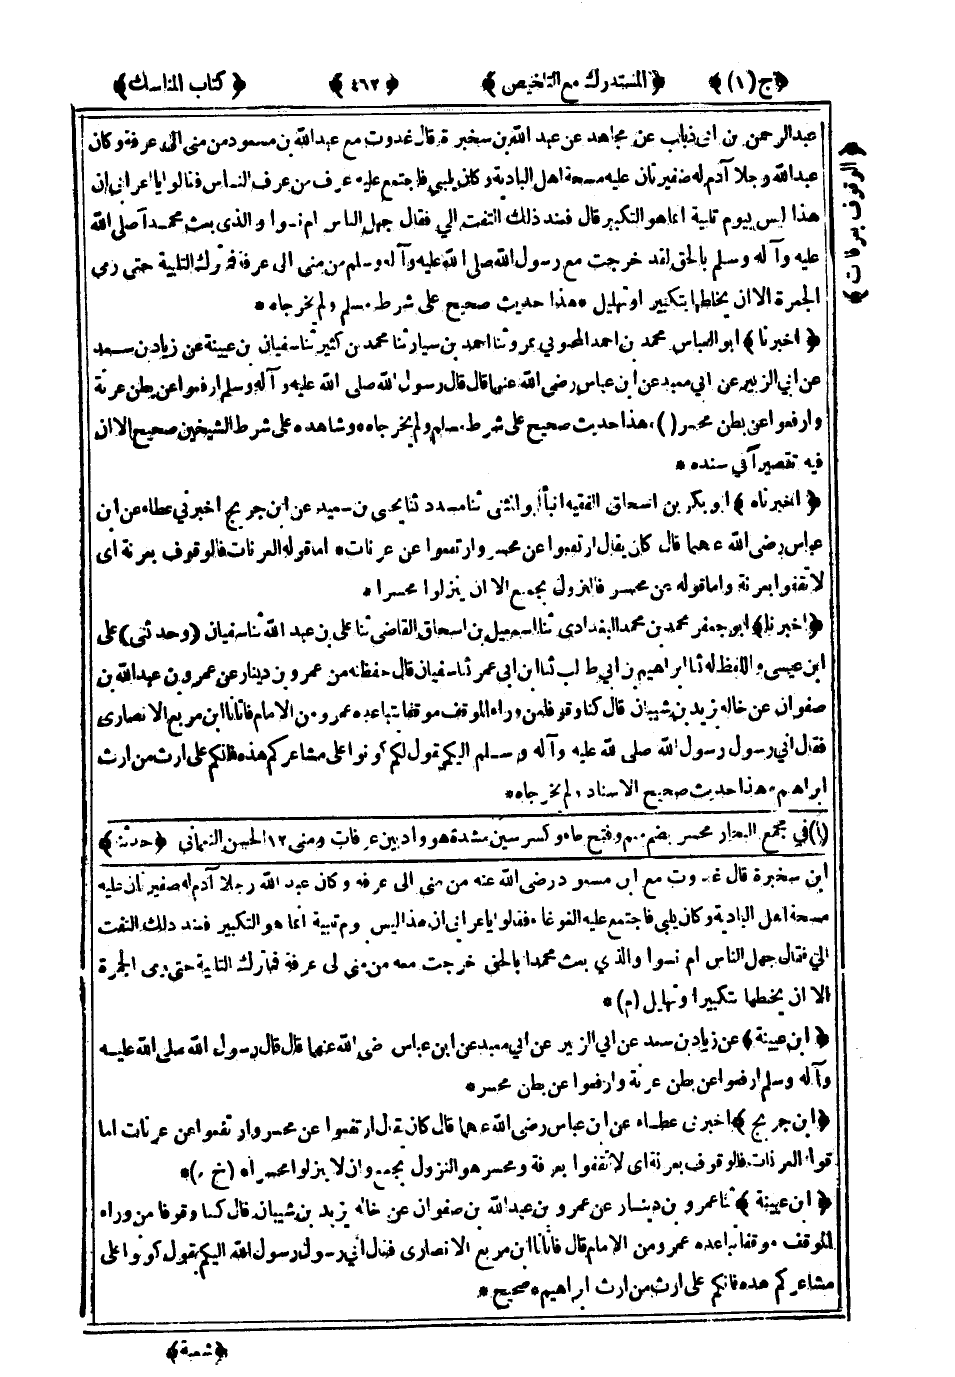 ﴿ج (١)﴾ ﴿المستدرك مع التلخيص﴾ ﴿٤٦٢﴾ ﴿كتاب المناسك﴾
﴿الوقوف بعرفات﴾
عبدالرحمن بن ابى ذباب عن مجاهد عن عبد الله بن سخبرة قال غدوت مع عبدالله بن مسعود من منى الى عرفة وكان
عبدالله رجلا آدم له ضفيرتان عليه مسحة اهل البادية وكان يلبي فاجتمع عليه عرف من عرف الناس فنالوا يا اعرابي ان
هذا ليس بيوم تلبية انما هو التكبير قال فعند ذلك التفت الي فقال جهل الناس ام نسوا والذى بعث محمدا صلى الله
عليه وآله وسلم بالحق لقد خرجت مع رسول الله صلى الله عليه وآله وسلم من منى الى عرفة فما ترك التلبية حتى رمى
الجمرة الا ان يخلطها بتكبير او تهليل * هذا حديث صحيح على شرط مسلم ولم يخرجاه *
﴿اخبرنا﴾ ابو العباس محمد بن احمد المحبوبي بمرو ثنا احمد بن سيار ثنا محمد بن كثير ثنا سفيان بن عيينة عن زياد بن سعد
عن ابي الزبير عن ابي معبد عن ابن عباس رضى الله عنهما قال قال رسول الله صلى الله عليه وآله وسلم ارفعوا عن بطن عرنة
وارفعوا عن بطن محسر ( ) * هذا حديث صحيح على شرط مسلم ولم يخرجاه * وشاهده على شرط الشيخين صحيح الا ان
فيه تقصيرا في سنده *
﴿اخبرناه﴾ ابو بكر بن اسحاق الفقيه انبأ ابو المثنى ثنا مسدد ثنا يحيى بن سعيد عن ابن جريج اخبرني عطاء عن ابن
عباس رضى الله عنهما قال كان يقال ارتفعوا عن محسر وارتفعوا عن عرنات * اما قوله العرنات فالوقوف بعرنة اى
لا تقفوا بعرنة واما قوله عن محسر فالنزول بجمع الا ان ينزلوا محسرا *
﴿اخبرنا﴾ ابو جعفر محمد بن محمد البغدادي ثنا اسمعيل بن اسحاق القاضي ثنا على بن عبد الله ثنا سفيان (وحدثنى) على
ابن عيسى واللفظ له ثنا ابراهيم بن ابي طالب ثنا ابن ابي عمر ثنا سفيان قال حفظته من عمرو بن دينار عن عمرو بن عبدالله بن
صفوان عن خاله يزيد بن شيبان قال كنا وقوفا من وراء الموقف موقفا يتباعده عمرو من الامام فاتانا ابن مربع الانصارى
فقال اني رسول رسول الله صلى الله عليه وآله وسلم اليكم يقول لكم كونوا على مشاعركم هذه فانكم على ارث من ارث
ابراهيم * هذا حديث صحيح الاسناد ولم يخرجاه *
(١) في مجمع البحار محسر بضم ميم وفتح حاء وكسر سين مشددة هو واد بين عرفات ومنى ١٢ الحسن النعماني ﴿حدثنا﴾
ابن سخبرة قال غدوت مع ابن مسعود رضى الله عنه من منى الى عرفة وكان عبد الله رجلا آدم له ضفيرتان عليه
مسحة اهل البادية وكان يلبي فاجتمع عليه الغوغاء فقالوا يا اعرابي ان هذا ليس يوم تلبية انما هو التكبير فعند ذلك التفت
الي فقال جهل الناس ام نسوا والذي بعث محمدا بالحق خرجت معه من منى الى عرفة فما ترك التلبية حتى رمى الجمرة
الا ان يخلطها بتكبير او تهليل (م) *
﴿ابن عيينة﴾ عن زياد بن سعد عن ابي الزبير عن ابي معبد عن ابن عباس رضى الله عنهما قال قال رسول الله صلى الله عليه
وآله وسلم ارفعوا عن بطن عرنة وارفعوا عن بطن محسر *
﴿ابن جريج﴾ اخبرنى عطاء عن ابن عباس رضى الله عنهما قال كان يقال ارتفعوا عن محسر وارتفعوا عن عرنات اما
قوله العرنات فالوقوف بعرنة اى لا تقفوا بعرنة ومحسر هو النزول بجمع وان لا ينزلوا محسرا * (خ م) *
﴿ابن عيينة﴾ ثنا عمرو بن دينار عن عمرو بن عبدالله بن صفوان عن خاله يزيد بن شيبان قال كنا وقوفا من وراء
الموقف موقفا يتباعده عمرو من الامام قال فاتانا ابن مربع الانصارى فقال اني رسول رسول الله اليكم يقول كونوا على
مشاعركم هذه فانكم على ارث من ارث ابراهيم * صحيح *
﴿شعبة﴾